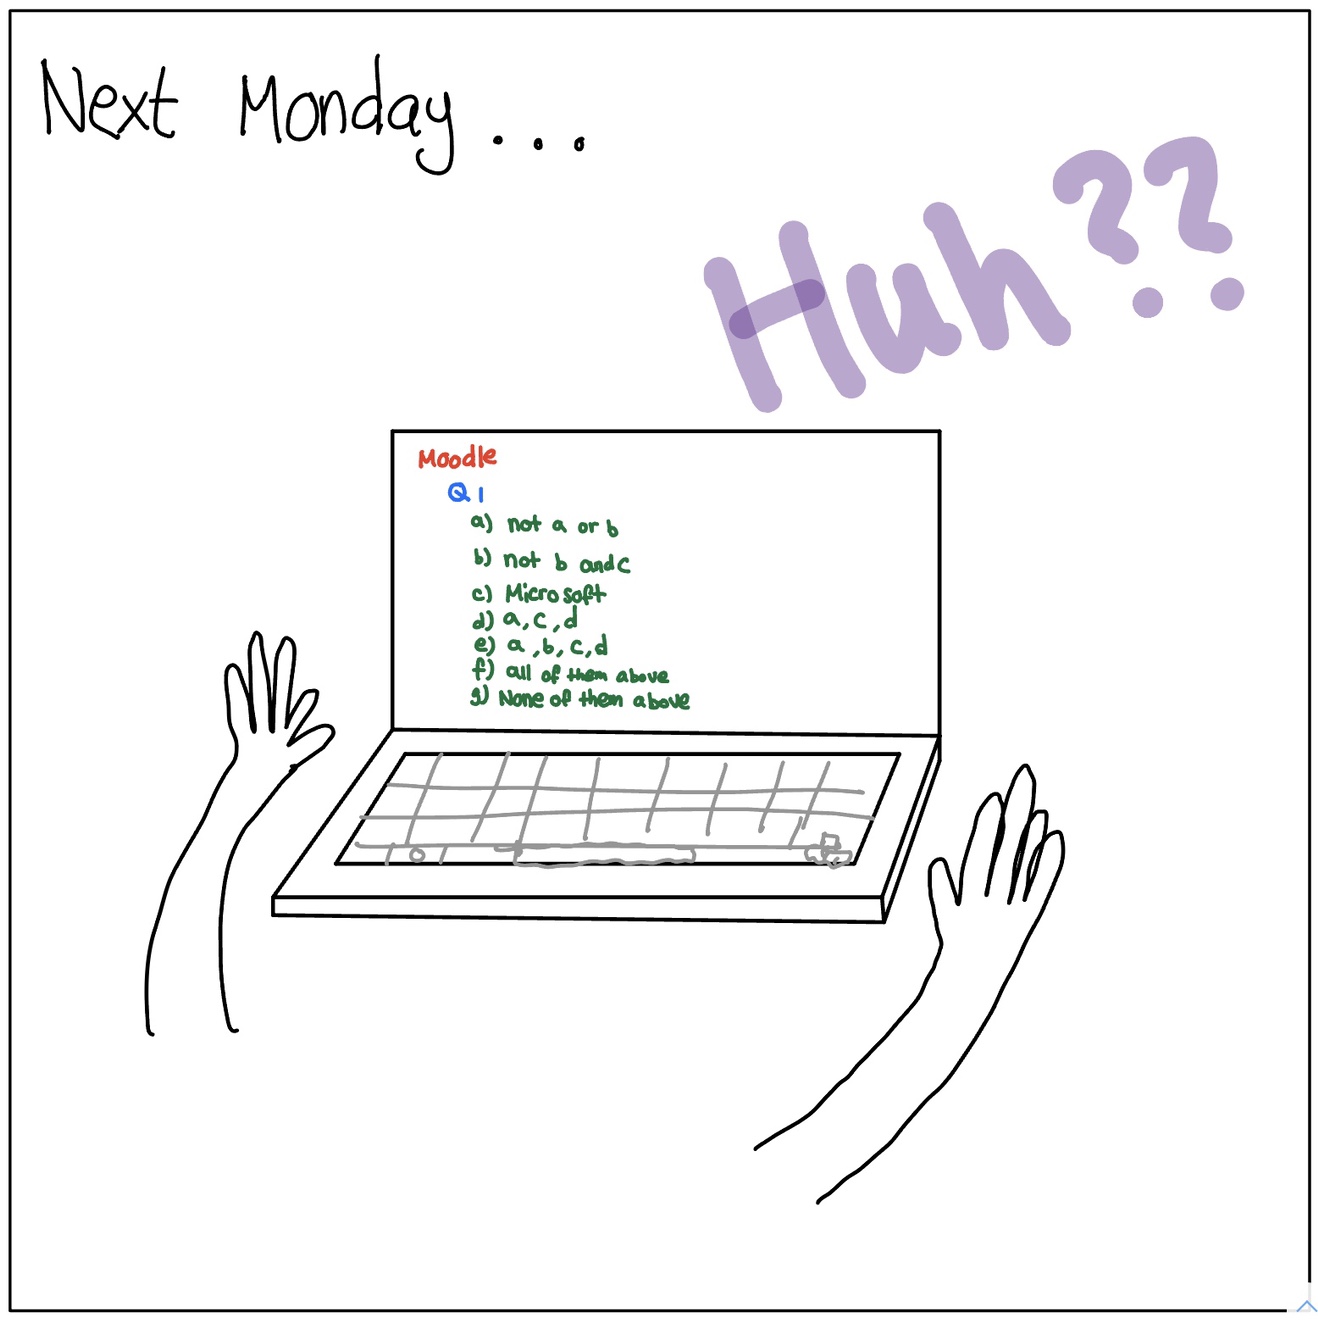 Next Monday...
Huh??
Moodle
Q1
a) not a or b
b) not b and c
c) Microsoft
d) a, c, d
e) a, b, c, d
f) all of them above
g) None of them above